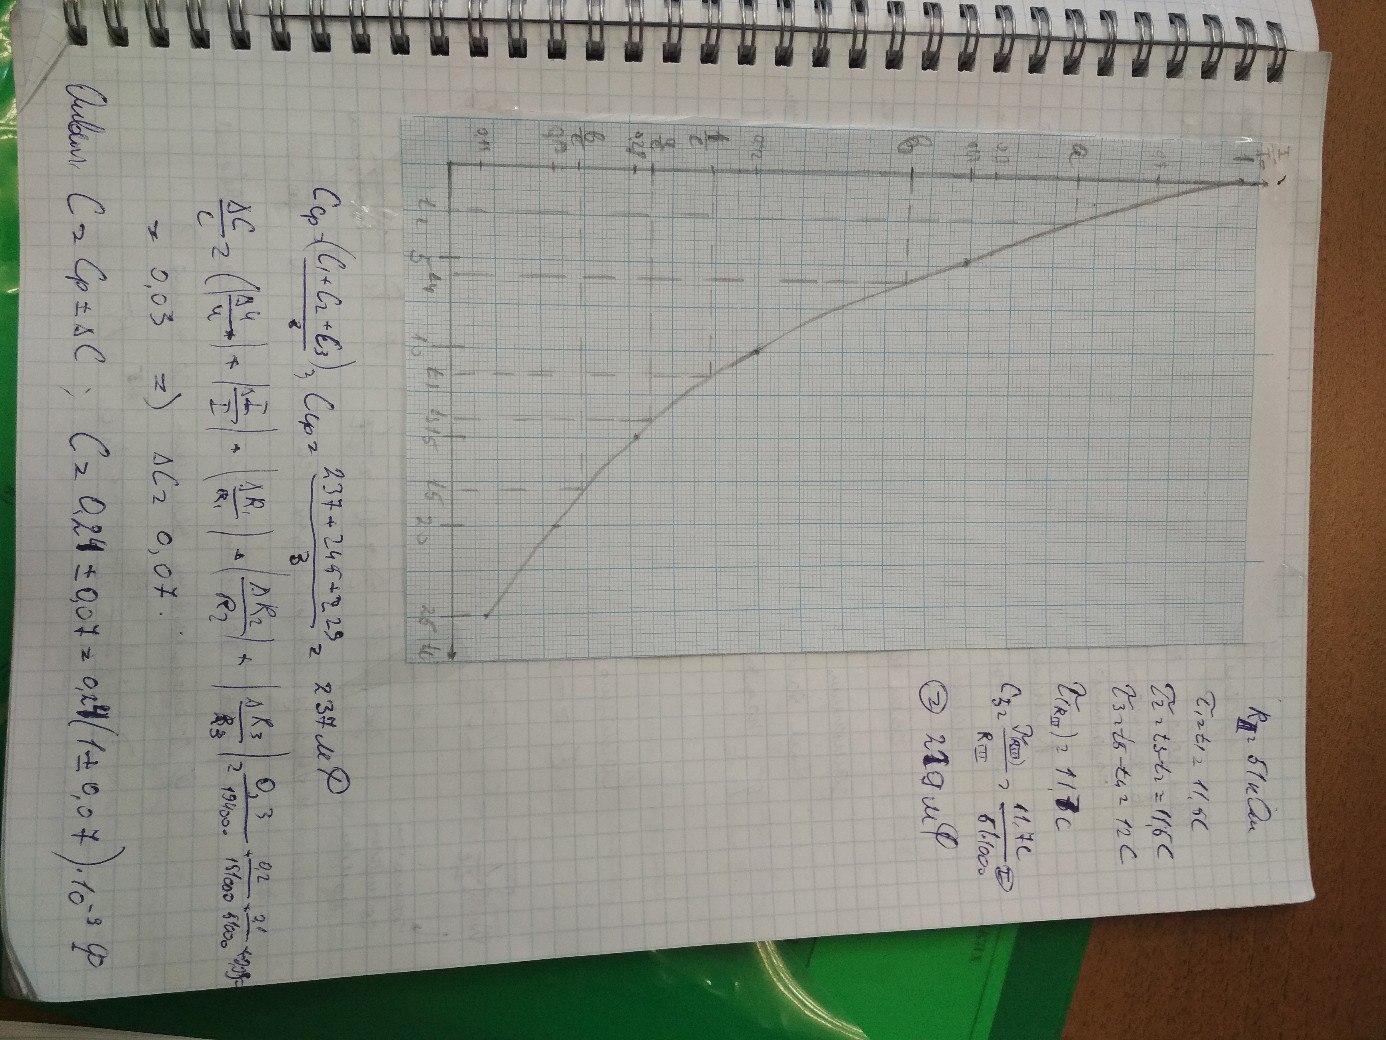 I/I₀
1
a
b
0,42
1/e
a/e
0,28
b/e
0,11
t₂ 5 t₄ 10 t₁ t₃ 15 t₅ 20 25 t,c
R_III = 51кОм
τ₁ = t₁ = 11,5С
τ₂ = t₃-t₂ = 11,5С
τ₃ = t₅-t₄ = 12С
τ(R_III) = 11,7С
C₃ = τ(R_III)/R_III = 11,7С/51·1000 =
= 229 мФ
Cср = (C₁+C₂+C₃)/3; Cср = 237+245+229/3 = 237 мФ
ΔC/C = (|Δu/u| + |ΔI/I| + |ΔR₁/R₁| + |ΔR₂/R₂| + |ΔR₃/R₃| = 0,3/194000 + 0,2/151000 + 0,1/51000
= 0,03 => ΔC = 0,07
Ответ: C = Cр ± ΔC; C = 0,24 ± 0,07 = 0,24(1 ± 0,07)·10⁻³ Ф